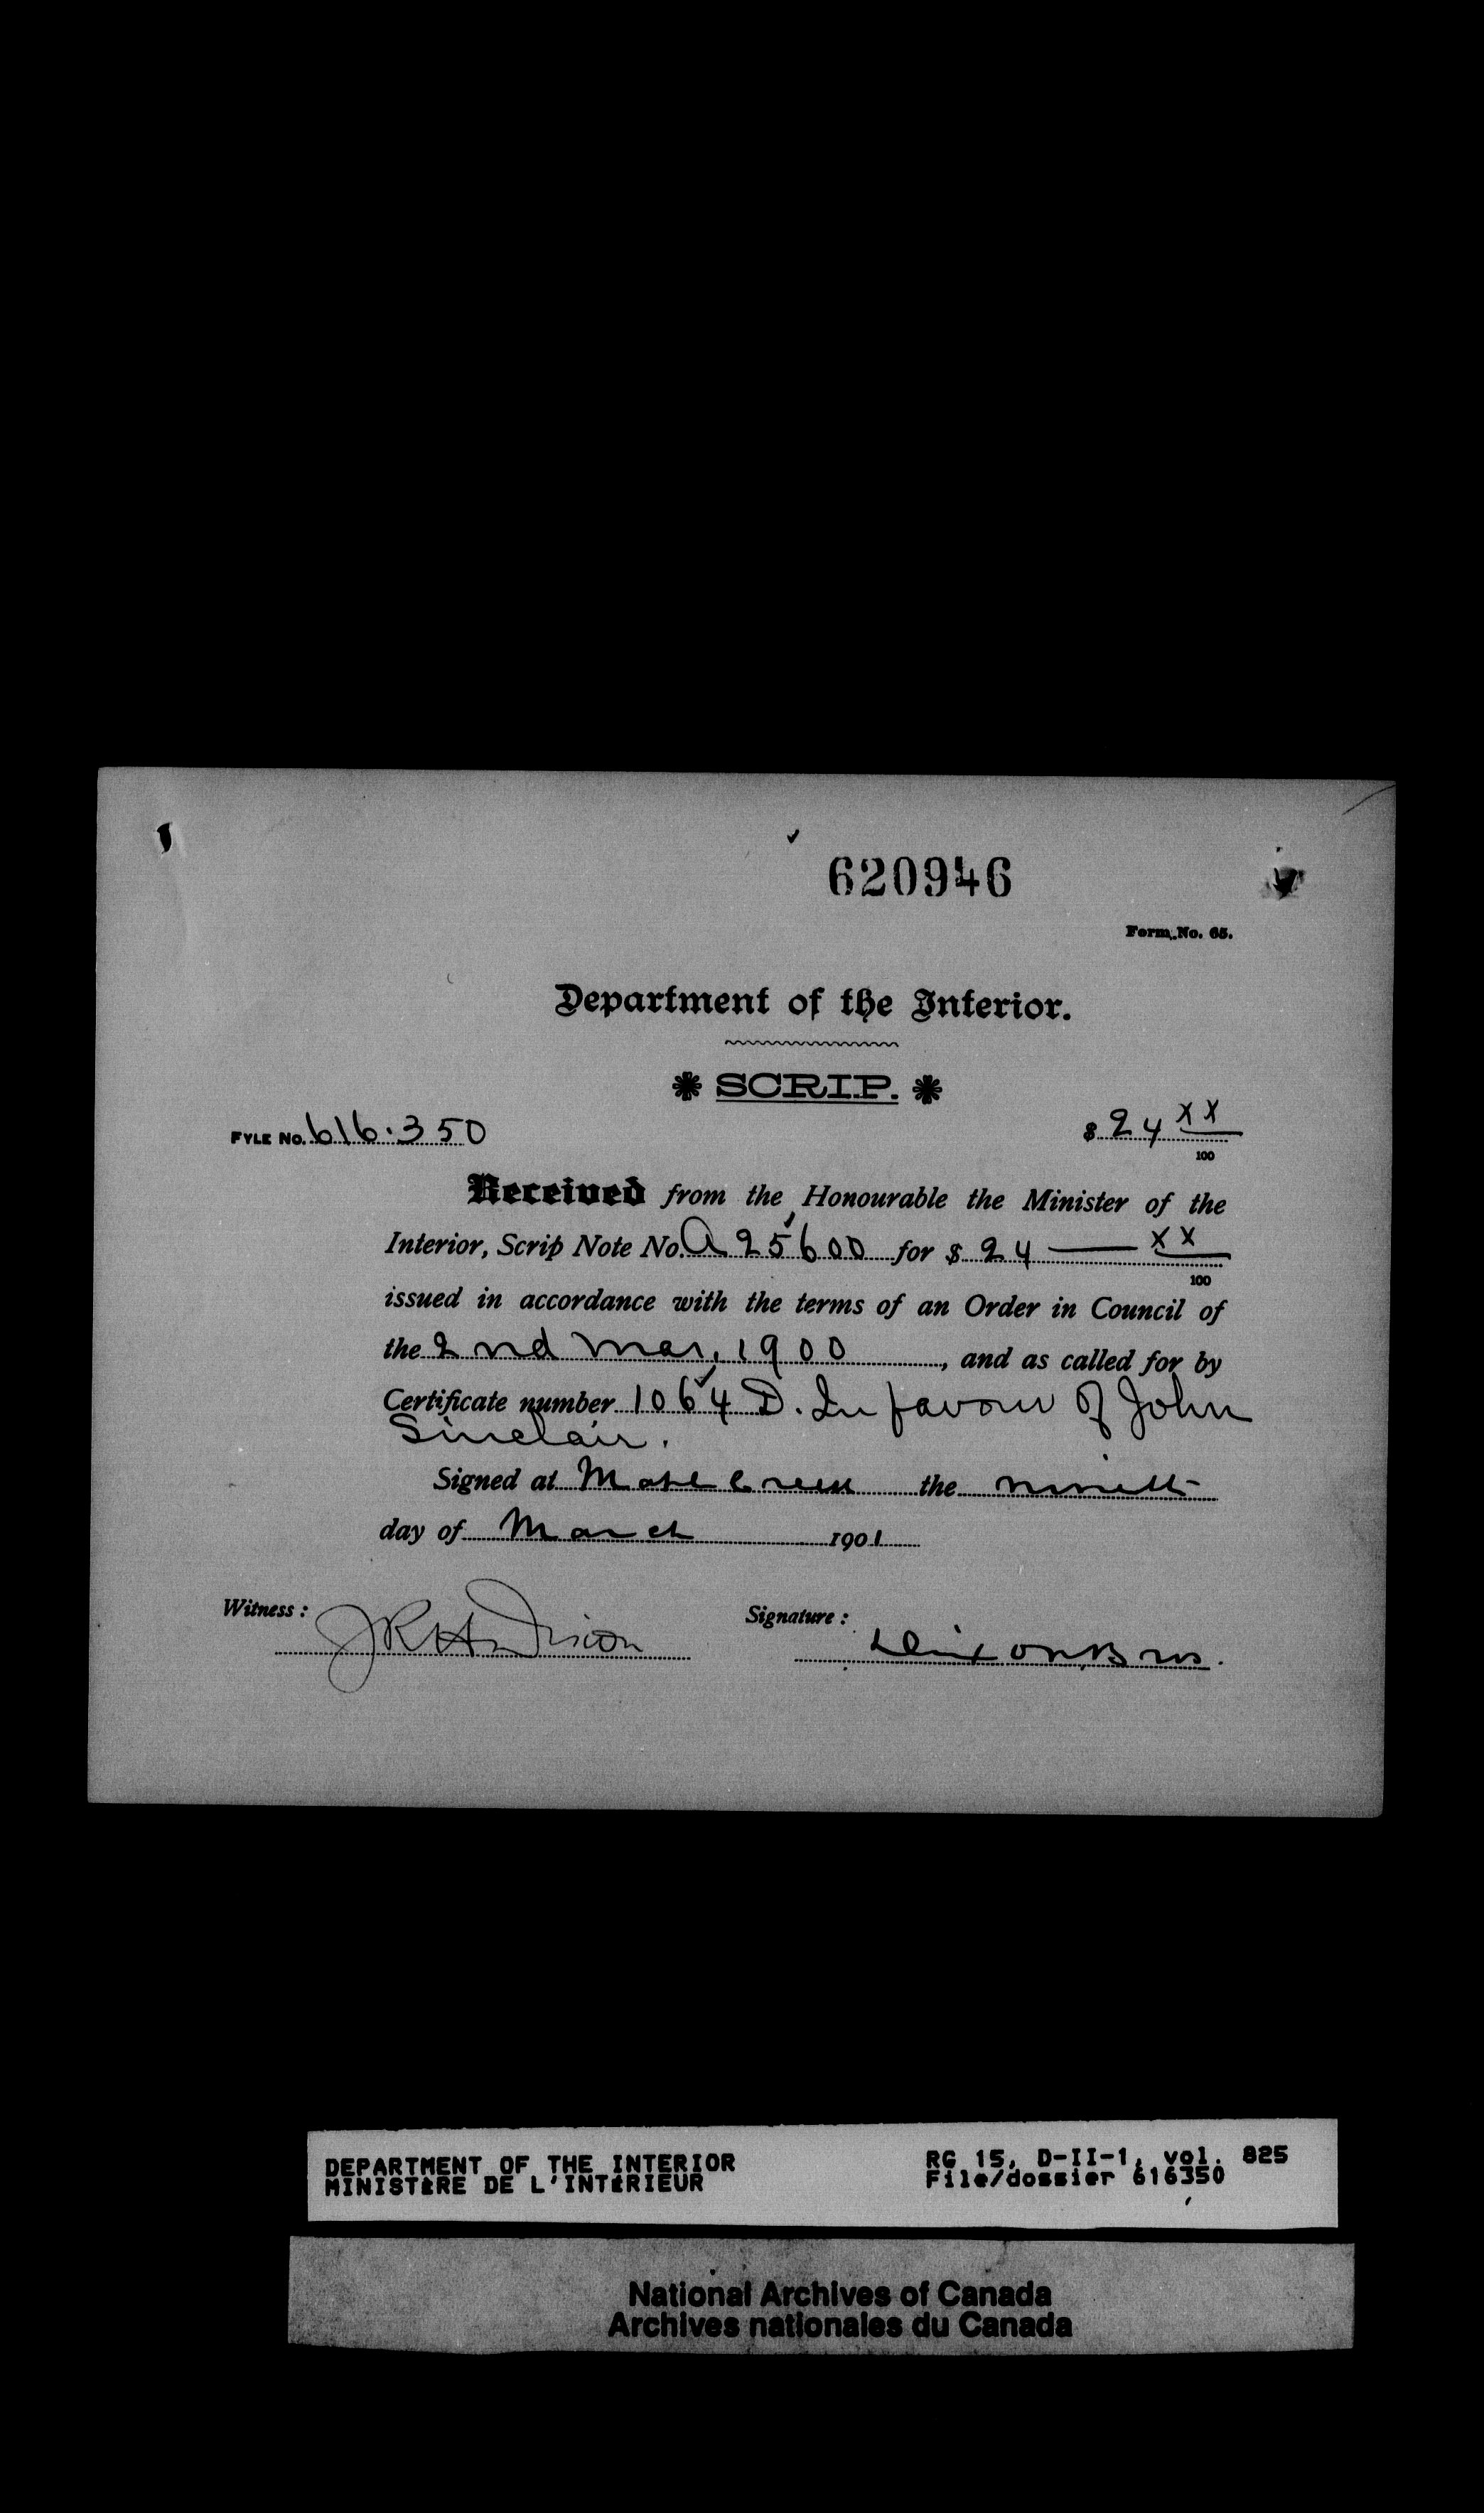 620946
Form No. 65.
Department of the Interior.
SCRIP.
FYLE No. 616.350
$ 24 XX/100
Received from the Honourable the Minister of the
Interior, Scrip Note No. A 25600 for $ 24 — XX/100
issued in accordance with the terms of an Order in Council of
the 2nd Mar, 1900, and as called for by
Certificate number 1064 D. In favour of John
Sinclair.
Signed at Maple Creek the ninth
day of March 1901
Witness:
Signature: Dixon Bros.
DEPARTMENT OF THE INTERIOR
MINISTÈRE DE L'INTÉRIEUR
RG 15, D-II-1, vol. 825
File/dossier 616350
National Archives of Canada
Archives nationales du Canada